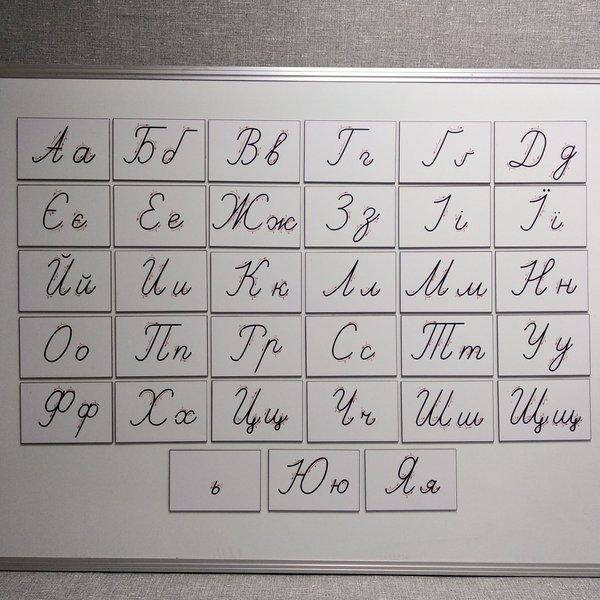 Аа Бб Вв Гг Ґґ Дд
Єє Ее Жж Зз Іі Її
Йй Ии Кк Лл Мм Нн
Оо Пп Рр Сс Тт Уу
Фф Хх Цц Чч Шш Щщ
ь Юю Яя